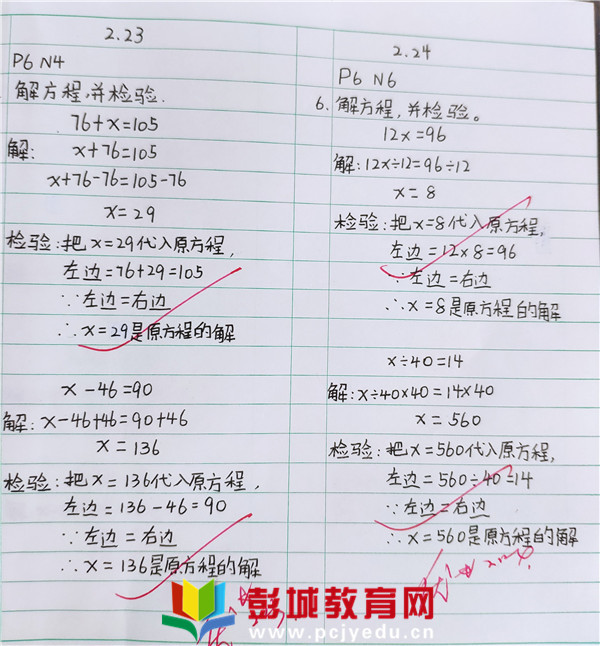 2.23
P6 N4
解方程,并检验.
76+x=105
解: x+76=105
x+76-76=105-76
x=29
检验:把x=29代入原方程,
左边=76+29=105
∵左边=右边
∴x=29是原方程的解
x-46=90
解:x-46+46=90+46
x=136
检验:把x=136代入原方程,
左边=136-46=90
∵左边=右边
∴x=136是原方程的解
2.24
P6 N6
6.解方程,并检验。
12x=96
解:12x÷12=96÷12
x=8
检验:把x=8代入原方程,
左边=12×8=96
∵左边=右边
∴x=8是原方程的解
x÷40=14
解:x÷40×40=14×40
x=560
检验:把x=560代入原方程,
左边=560÷40=14
∵左边=右边
∴x=560是原方程的解
彭城教育网
www.pcjyedu.cn